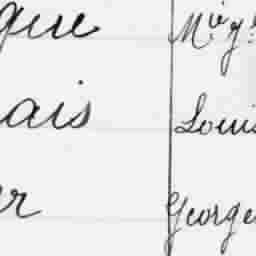 que Mie g.
ais Louis
er George